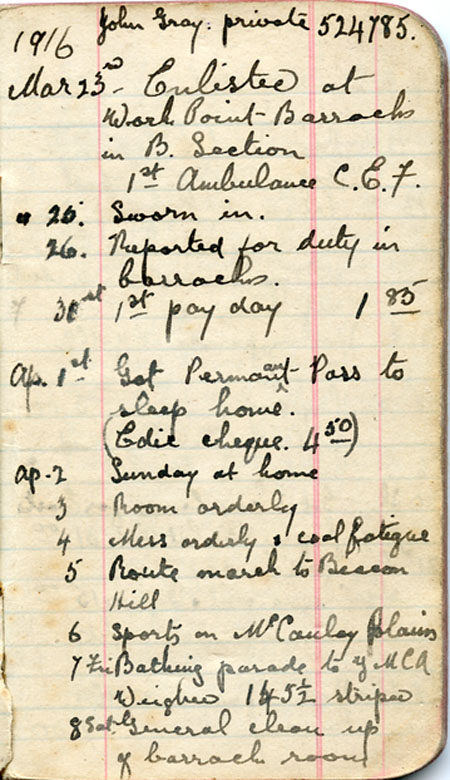 1916 John Gray: private 524785.
Mar 23rd - Enlisted at
Work Point Barracks
in B. Section
1st Ambulance C.E.F.
" 25. Sworn in.
26. Reported for duty in
barracks.
31st 1st pay day 1 85
Ap. 1st Got Permanant Pass to
sleep home.
(Edie cheque. 4 50)
Ap. 2 Sunday at home
3 Room orderly
4 Mess orderly & coal fatigue
5 Route march to Beacon
Hill
6 Sports on McCauley plains
7 Fri Bathing parade to YMCA
Weighed 145½ stripped
8 Sat. General clean up
of barrack room